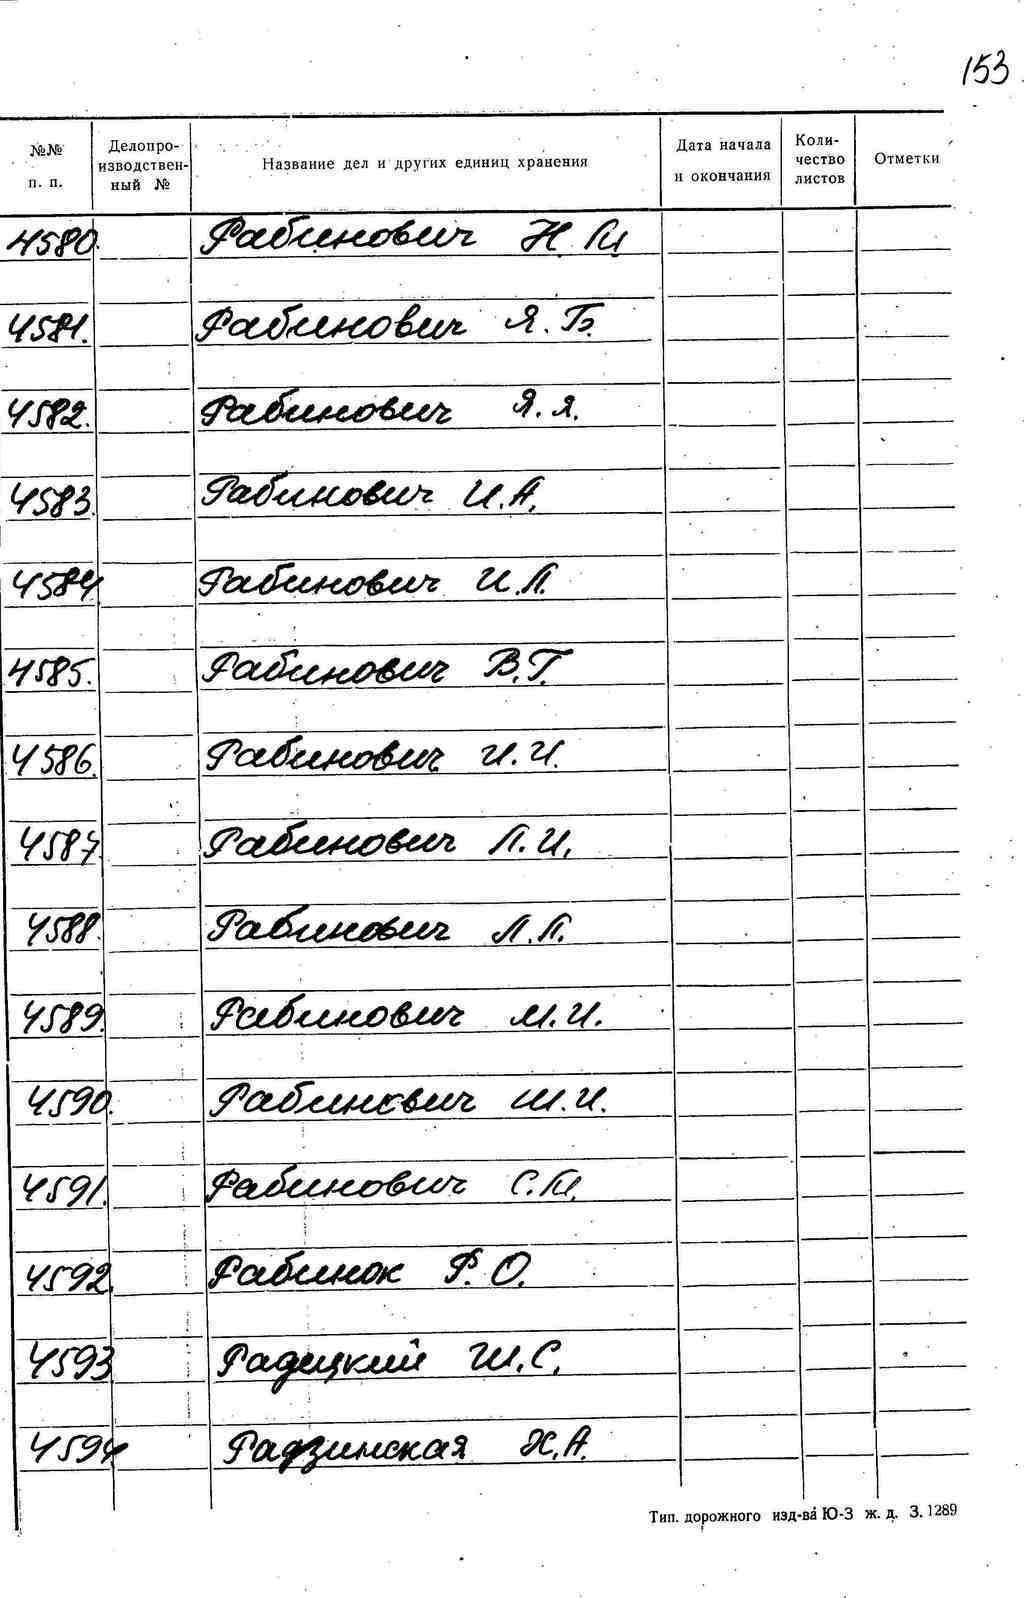 153
№№ п. п. Делопро-изводствен-ный № Название дел и других единиц хранения Дата начала и окончания Коли-чество листов Отметки
4580. Рабинович Н. М
4581. Рабинович Я. Б.
4582. Рабинович Я. Я.
4583. Рабинович И. А.
4584 Рабинович И. Л.
4585. Рабинович В. Г.
4586. Рабинович И. И.
4587. Рабинович Л. И.
4588. Рабинович Л. Л.
4589. Рабинович М. И.
4590. Рабинович Ш. И.
4591. Рабинович С. М.
4592. Рабинок Р. О.
4593 Радецкий Ш. С.
4594 Радзинская Х. А.
Тип. дорожного изд-ва Ю-З ж. д. З. 1289